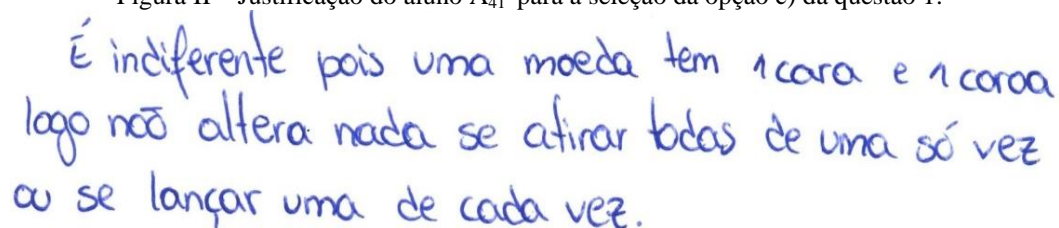 Figura II – Justificação do aluno A41 para a seleção da opção e) da questão 1.
É indiferente pois uma moeda tem 1 cara e 1 coroa
logo não altera nada se atirar todas de uma só vez
ou se lançar uma de cada vez.